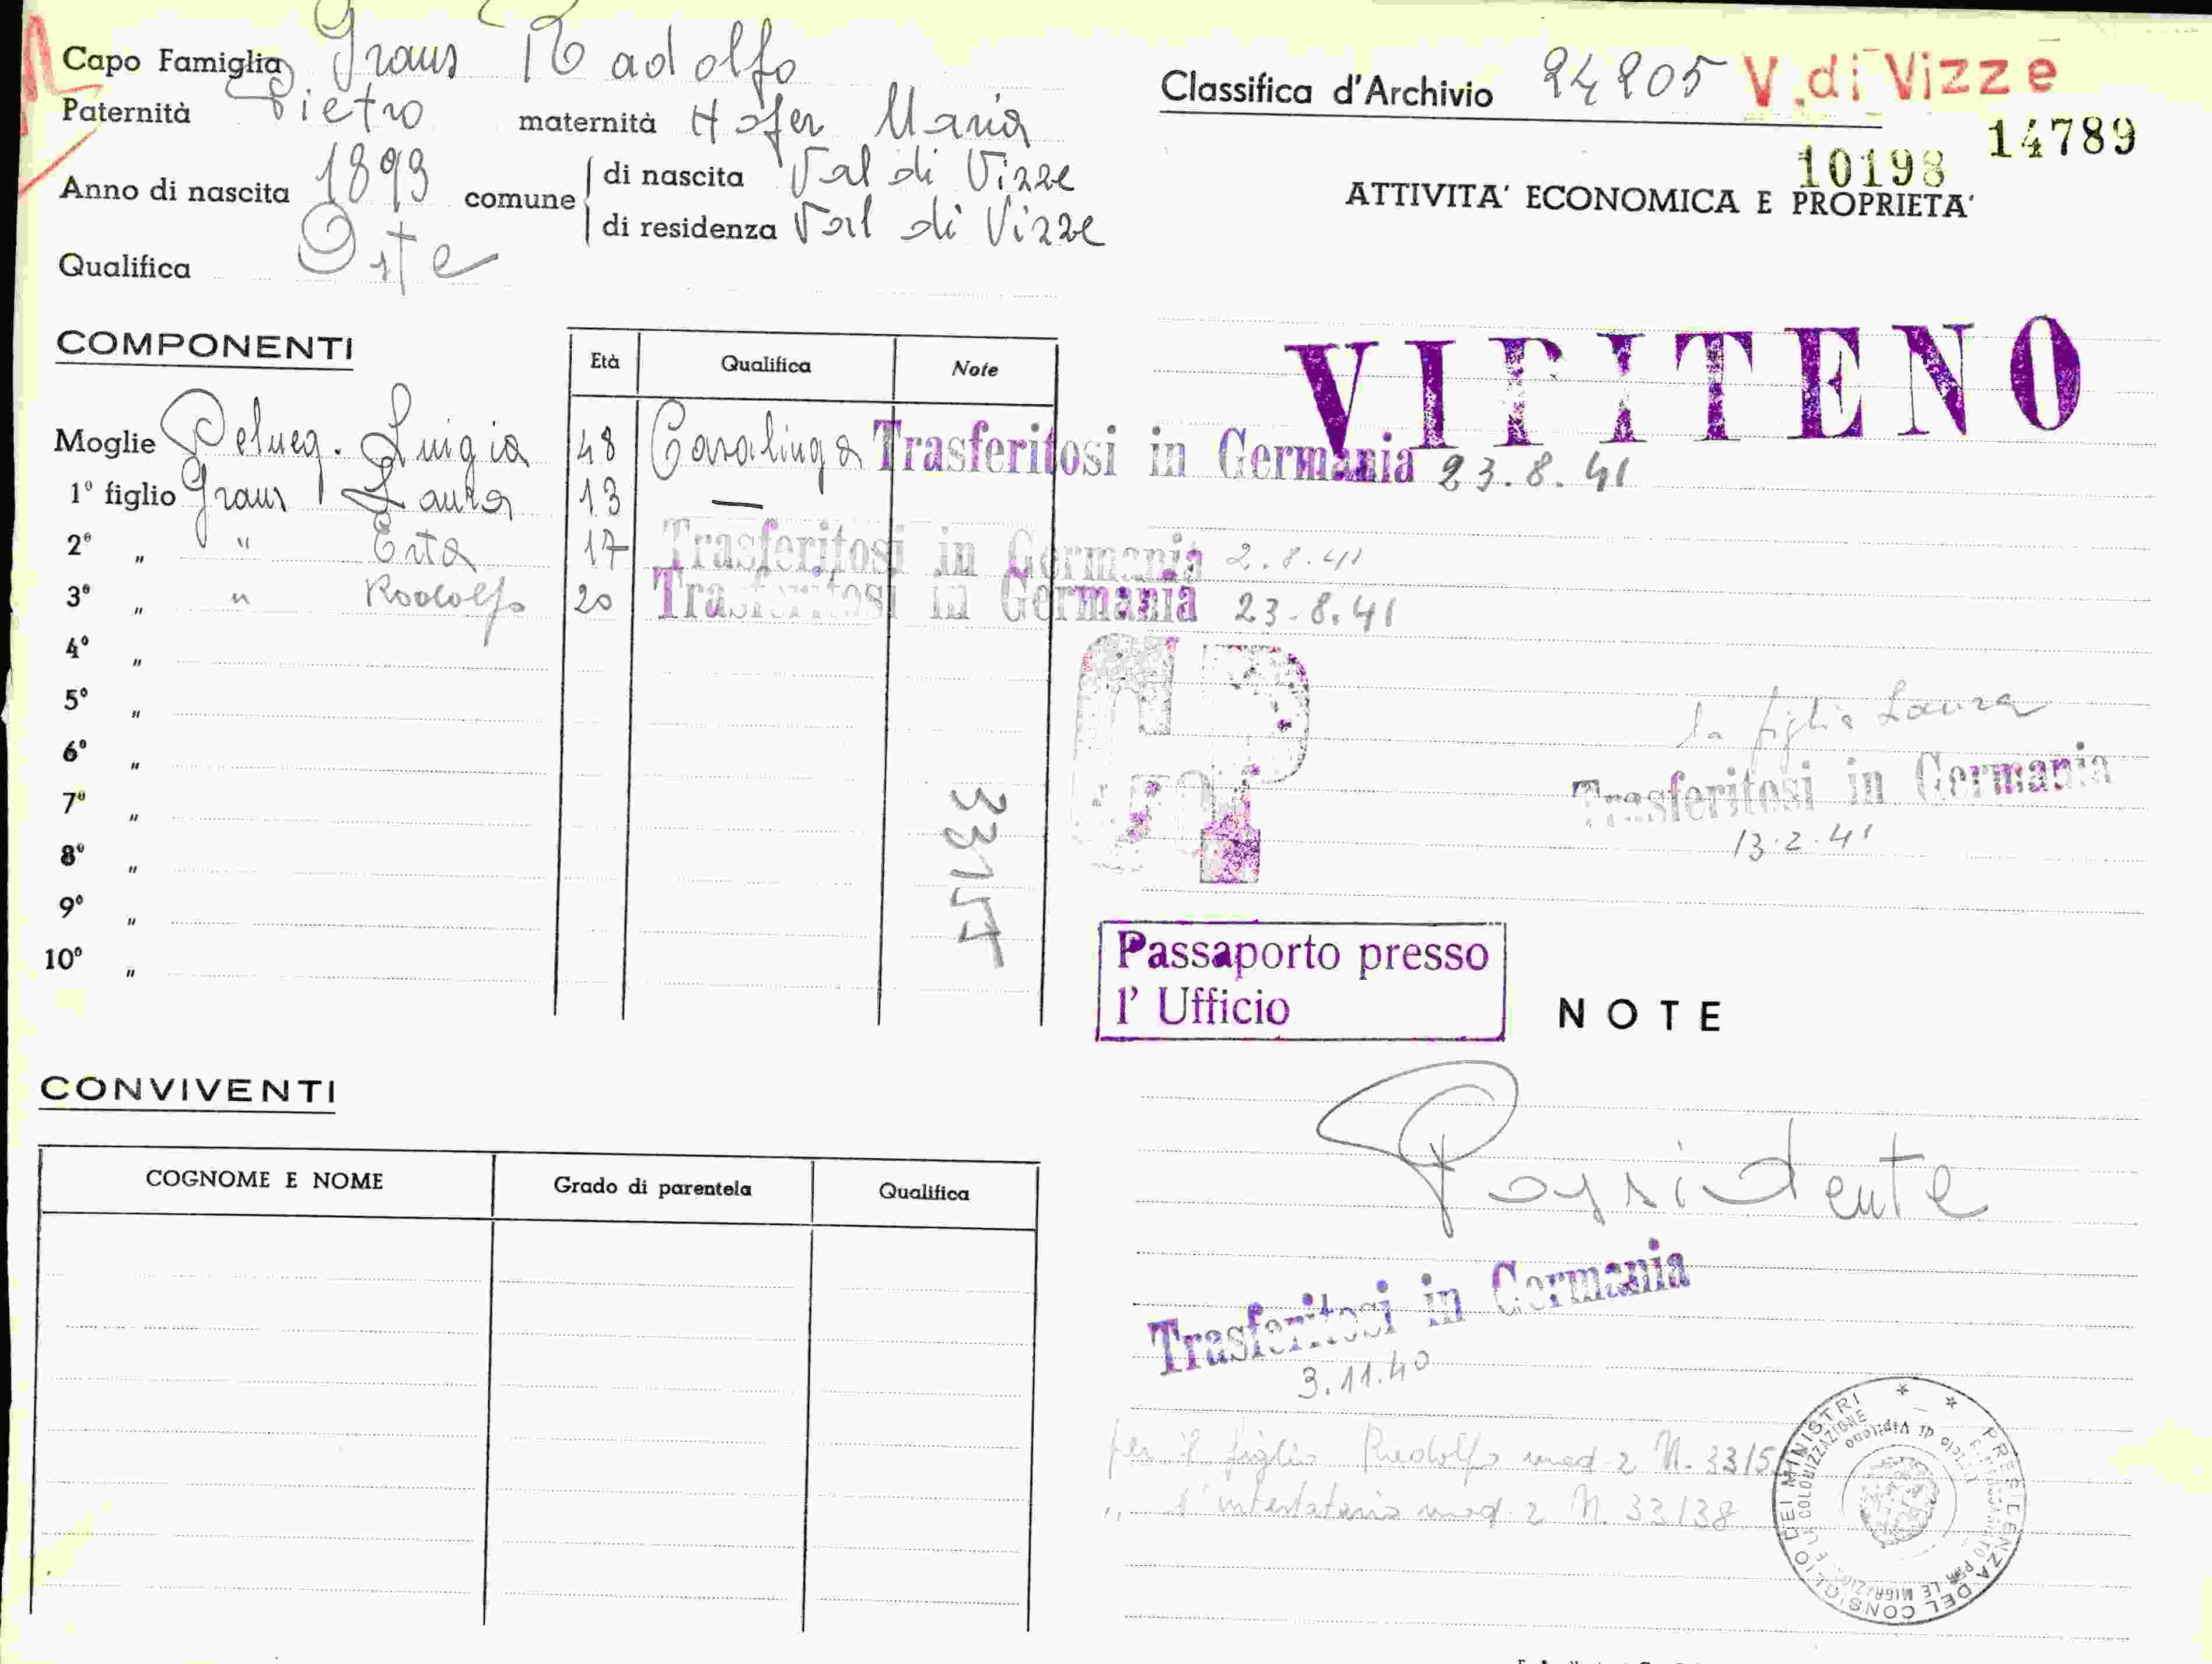 Capo Famiglia Graus Radolfo
Paternità Pietro maternità Hofer Maria
Anno di nascita 1893 comune di nascita Val di Vizze
di residenza Val di Vizze
Qualifica Oste
COMPONENTI
Età Qualifica Note
Moglie Luigia 48 Casalinga Trasferitosi in Germania 23.8.41
1º figlio Graus Laura 13 —
2º „ " Erta 17 Trasferitosi in Germania 2.8.41
3º „ " Rodolfo 20 Trasferitosi in Germania 23-8.41
4º „
5º „
6º „
7º „
8º „
9º „
10º „
33155
CONVIVENTI
COGNOME E NOME Grado di parentela Qualifica
Classifica d'Archivio 24205 V. di Vizze
10198 14789
ATTIVITA' ECONOMICA E PROPRIETA'
VIPITENO
la figlia Laura
Trasferitosi in Germania
13.2.41
Passaporto presso
l' Ufficio
NOTE
Possidente
Trasferitosi in Germania
3.11.40
per il figlio Rudolfo mod 2 N. 33155
„ l'intestatario mod. 2 N. 33138
PRESIDENZA DEL CONSIGLIO DEI MINISTRI
di Vipiteno